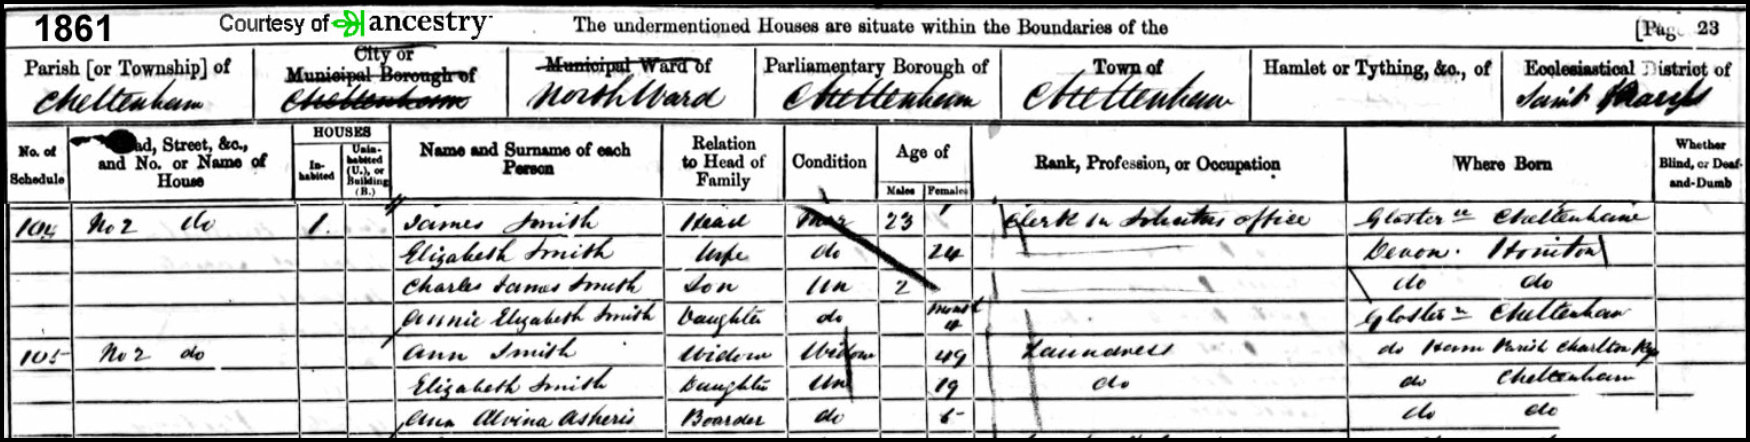 1861 Courtesy of ancestry The undermentioned Houses are situate within the Boundaries of the [Page 23
Parish [or Township] of City or Municipal Borough of Municipal Ward of Parliamentary Borough of Town of Hamlet or Tything, &c., of Ecclesiastical District of
Cheltenham Cheltenham North Ward Cheltenham Cheltenham Saint
No. of Schedule Road, Street, &c., and No. or Name of House HOUSES Inhabited Uninhabited (U.), or Building (B.) Name and Surname of each Person Relation to Head of Family Condition Age of Males Females Rank, Profession, or Occupation Where Born Whether Blind, or Deaf-and-Dumb
104 No 2 do 1 James Smith Head Mar 23 Clerk in Solicitors office Gloster Cheltenham
Elizabeth Smith Wife do 24 Devon. Honiton
Charles James Smith Son Un 2 do do
Annie Elizabeth Smith Daughter do Gloster Cheltenham
105 No 2 do Ann Smith Widow Widow 49 Laundress do Ham Parish Charlton
Elizabeth Smith Daughter Un 19 do do Cheltenham
Ann Alvina Asheris Boarder do do do